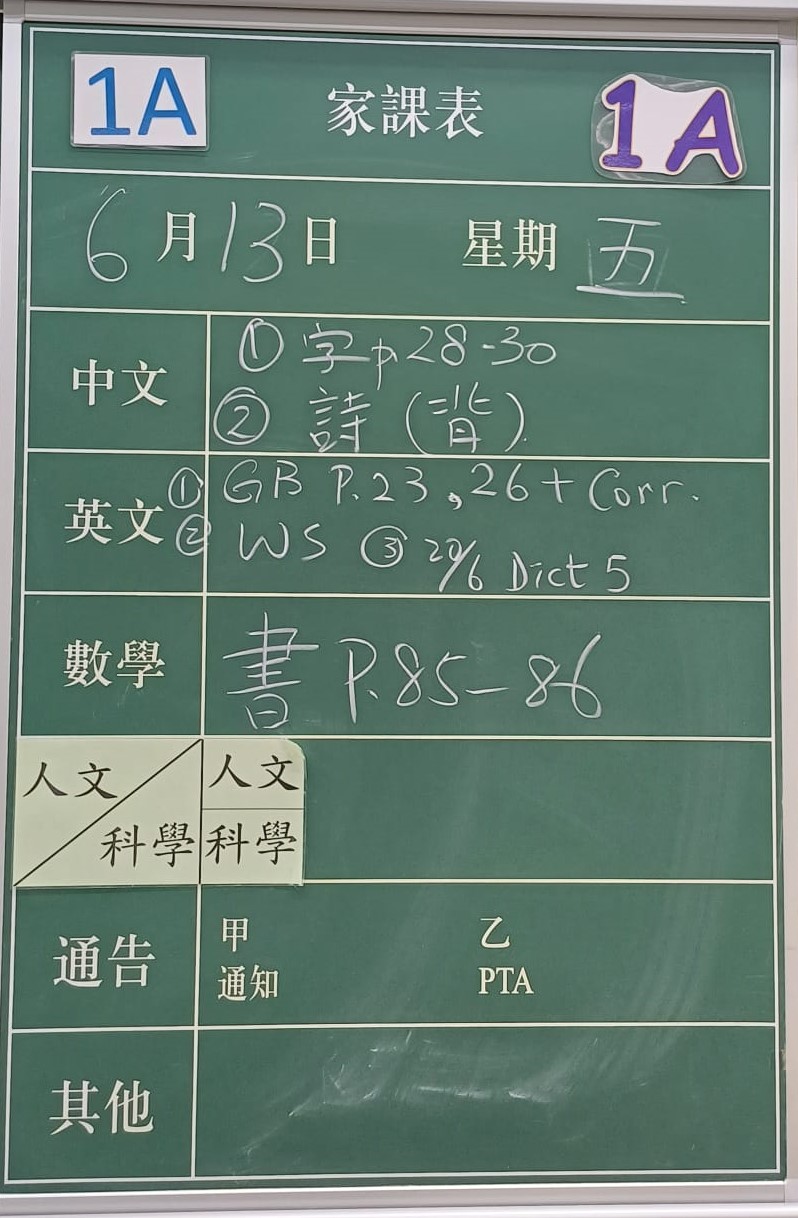 1A 家課表 1A
6月13日 星期 五
中文 ① 字p28-30
② 詩 (背)
英文 ① GB P.23,26 + Corr.
② WS ③ 20/6 Dict 5
數學 書 P.85-86
人文 人文
科學 科學
通告 甲 乙
通知 PTA
其他